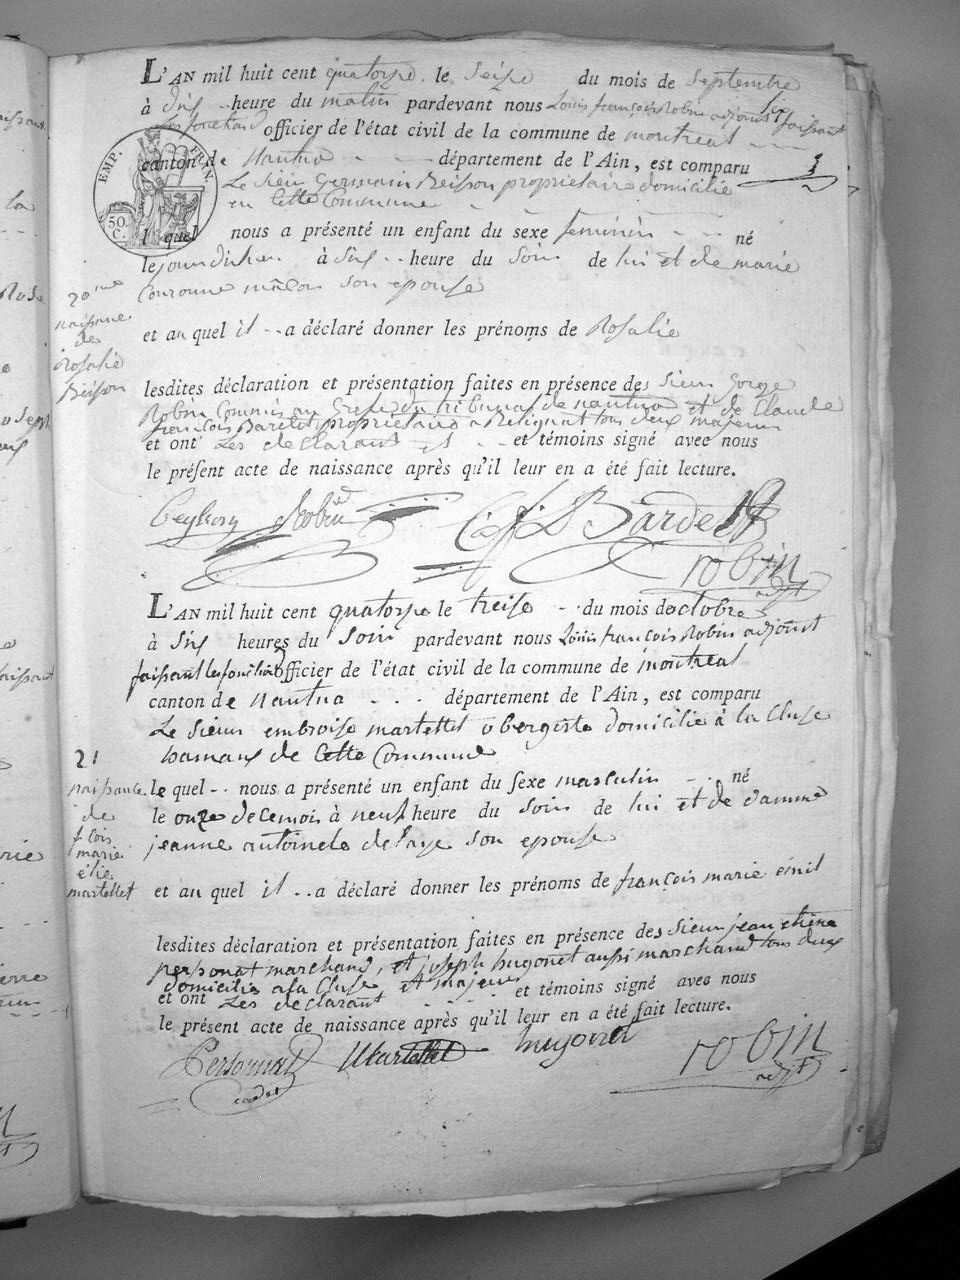 L'AN mil huit cent quatorze le seize du mois de septembre
à dix heure du matin pardevant nous Louis françois Robin adjoint faisant
les fonctions officier de l'état civil de la commune de montreal
canton de Nantua département de l'Ain, est comparu
Le sieur Germain Beisson proprietaire domicilié
en Cette Commune
EMP. FRAN.
50 C.
lequel nous a présenté un enfant du sexe feminin né
le jour d'hier à six heure du soir de lui et de marie
Couronne son epouse
20me
naissance
de
Rosalie
Beisson
et auquel il a déclaré donner les prénoms de Rosalie
lesdites déclaration et présentation faites en présence des sieur Gorge
Robin Commis au Grefe du tribunal de nantua et de Claude
françois Bardet proprietaire a tous deux majeur
et ont Les declarant et témoins signé avec nous
le présent acte de naissance après qu'il leur en a été fait lecture.
Beysson Robin C. f. Bardet
robin
adjt
L'AN mil huit cent quatorze le treise du mois doctobre
à six heures du soir pardevant nous Louis françois Robin adjoint
faisant les fonction Officier de l'état civil de la commune de montreal
canton de Nantua département de l'Ain, est comparu
Le sieur embroise martellet obergiste domicilié à la Cluse
hamaux de Cette Commune
21
naissance
de
fçois
marie
élie
martellet
lequel nous a présenté un enfant du sexe masculin né
le onze de ce mois à neuf heure du soir de lui et de damme
jeanne antoinete delaye son epouse
et auquel il a déclaré donner les prénoms de françois marie émil
lesdites déclaration et présentation faites en présence des sieur jean
personat marchand, et joseph hugonet aussi marchand tous deux
domicilié a la Cluse, et majeur
et ont Les declarant et témoins signé avec nous
le présent acte de naissance après qu'il leur en a été fait lecture.
Personnat Martellet hugonet robin
cadet adjt